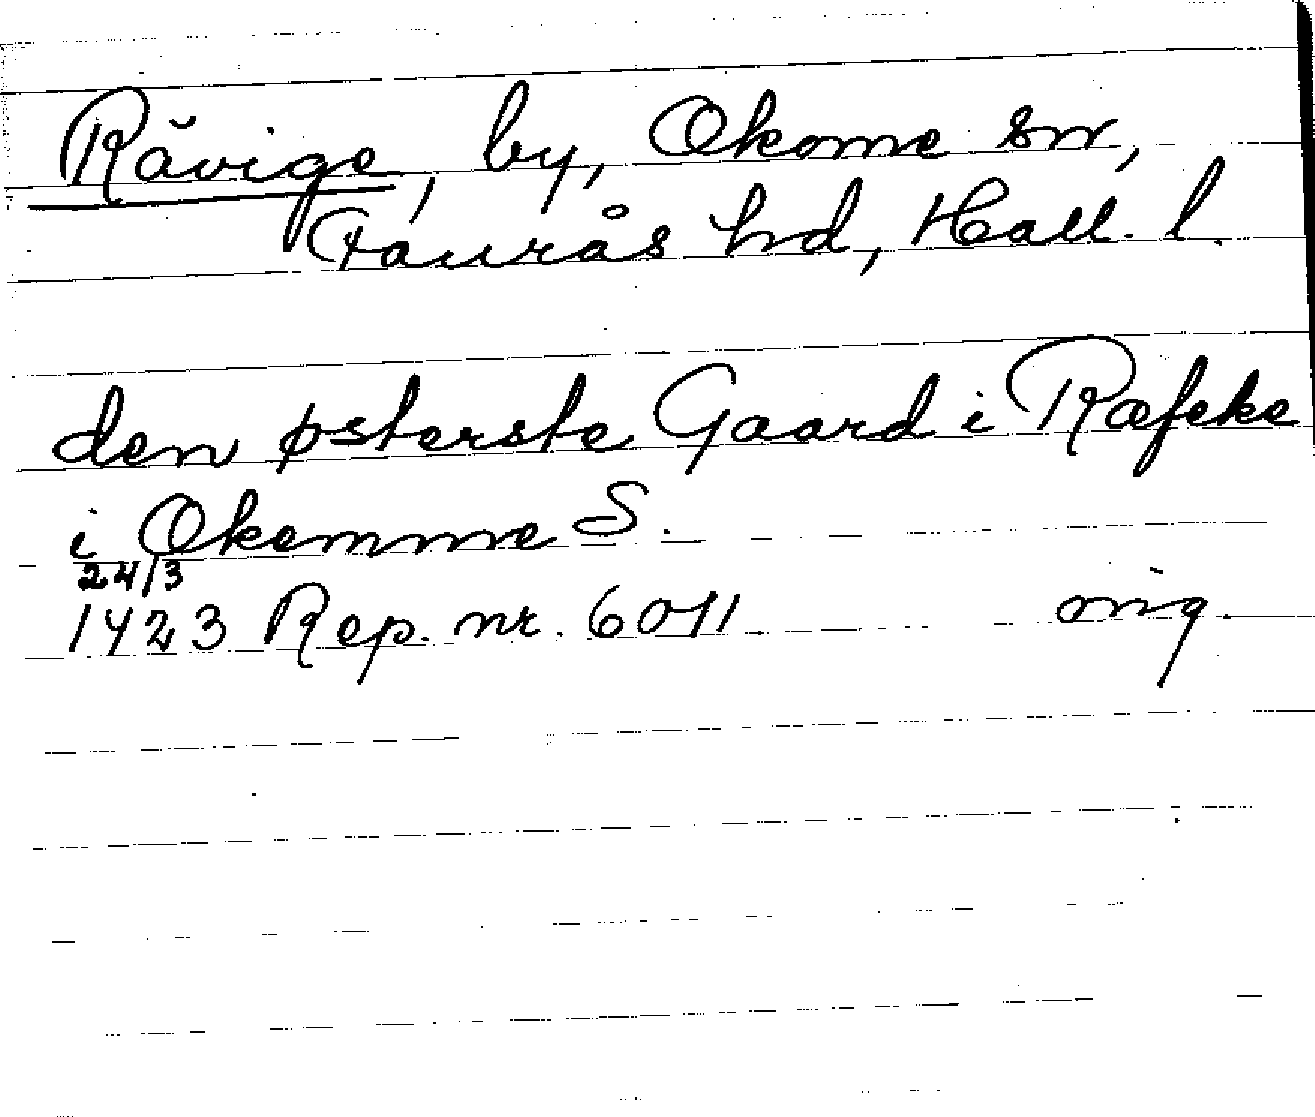 Rävige, by, Okome sn,
Faurås hd, Hall. l.
den østerste Gaard i Ræfeke
i Okemme S.
24/3
1423 Rep. nr. 6011 orig.